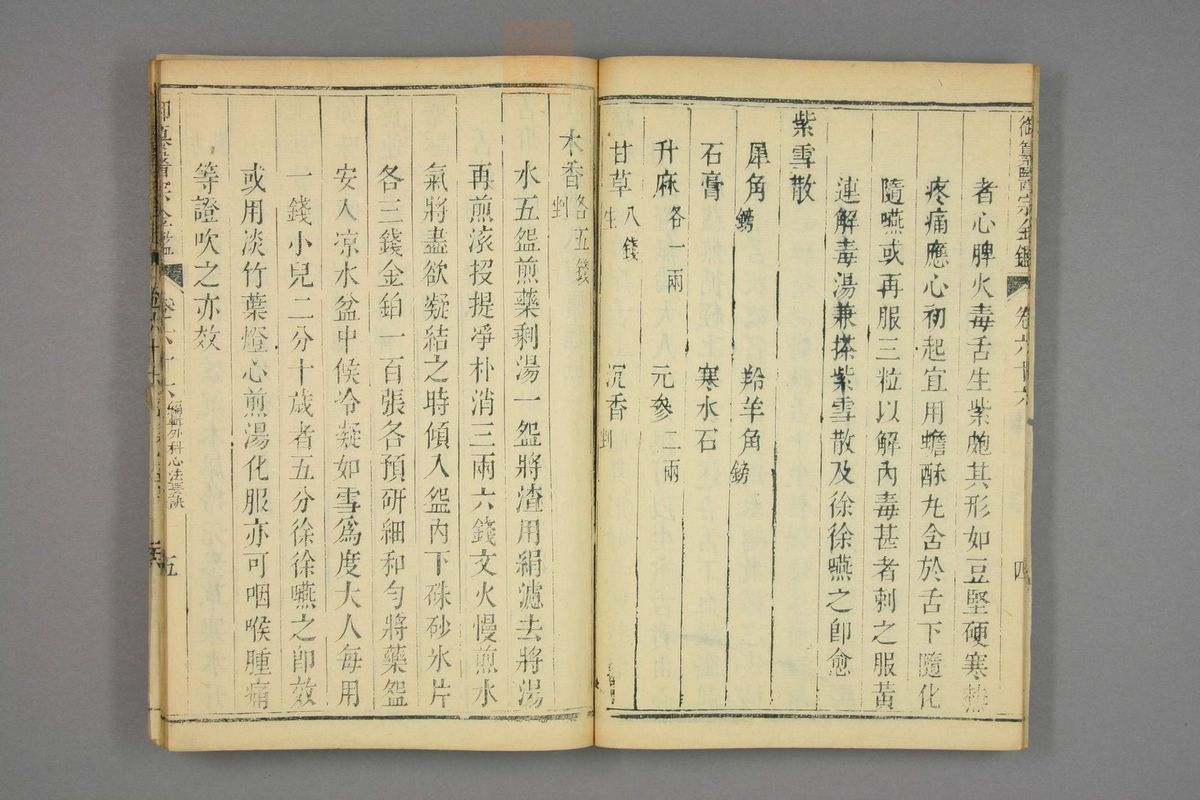 御纂醫宗金鑑 卷六十六 四
者心脾火毒舌生紫皰其形如豆堅硬寒熱
疼痛應心初起宜用蟾酥丸含於舌下隨化
隨嚥或再服三粒以解內毒甚者刺之服黃
連解毒湯兼搽紫雪散及徐徐嚥之卽愈
紫雪散
犀角 鎊 羚羊角 鎊
石膏 寒水石
升麻 各一兩 元參 二兩
甘草 八錢 生 沉香 剉
木香 各五錢 剉
水五盌煎藥剩湯一盌將渣用絹濾去將湯
再煎滾投提凈朴消三兩六錢文火慢煎水
氣將盡欲凝結之時傾入盌內下硃砂氷片
各三錢金鉑一百張各預研細和勻將藥盌
安入凉水盆中候冷凝如雪爲度大人每用
一錢小兒二分十歲者五分徐徐嚥之卽效
或用淡竹葉燈心煎湯化服亦可咽喉腫痛
等證吹之亦效
卷六十六 編輯外科心法要訣 五